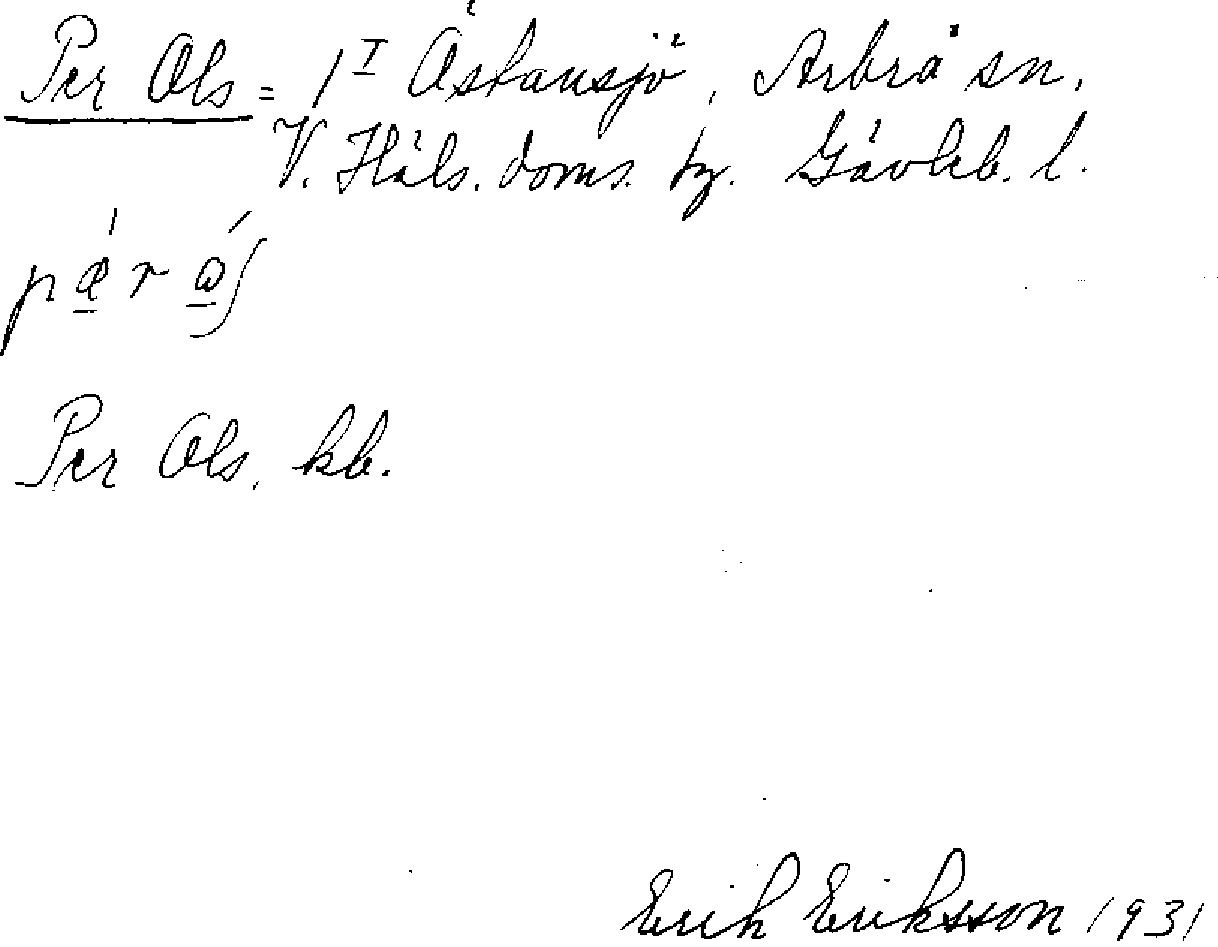 Per Ols = 1<sup>I</sup> Östansjö, Arbrå sn.
V. Häls. doms. hz. Gävleb. l.
pǽr ǫ́ʃ
Per Ols, kb.
Erik Eriksson 1931